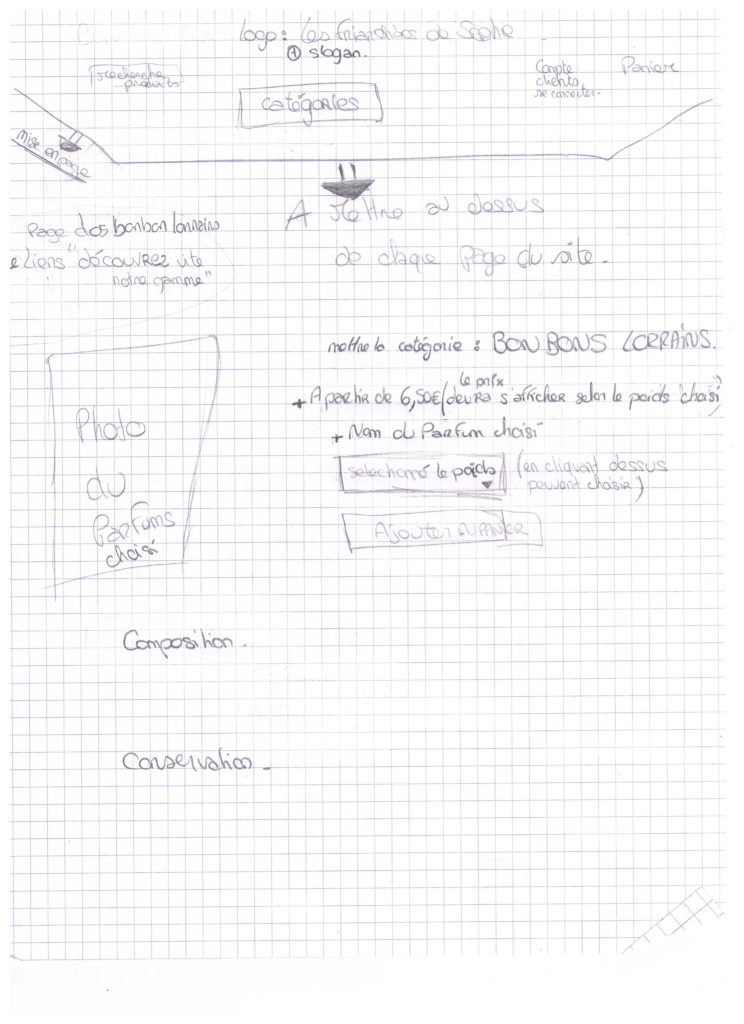 logo : Les friandises de Sophe
+ slogan.
recherche
produits
Compte
clients
se connecter-
Panier
catégories
Mise en page
A Mettre au dessus
de chaque page du site-
Page dos bonbon lorrains
e liens "découvrez vite
notre gamme"
mettre la catégorie : BONBONS LORRAINS.
le prix
+ A partir de 6,50€/devra s'afficher selon le poids choisi
+ Nom du Parfum choisi
selectionné le poids
(en cliquant dessus
peuvent choisir)
Ajouter au PANIER
Photo
du
Parfums
choisi
Composition-
Conservation-